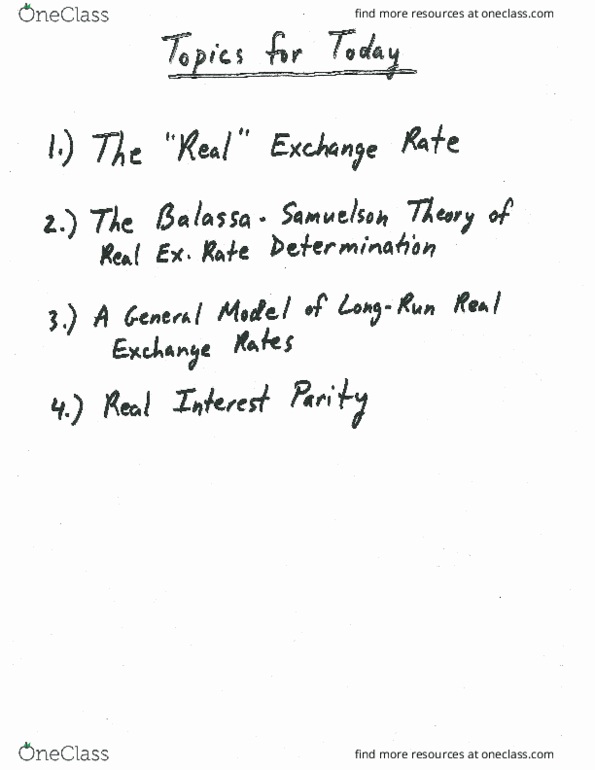 OneClass
find more resources at oneclass.com
Topics for Today
1.) The "Real" Exchange Rate
2.) The Balassa-Samuelson Theory of
Real Ex. Rate Determination
3.) A General Model of Long-Run Real
Exchange Rates
4.) Real Interest Parity
OneClass
find more resources at oneclass.com